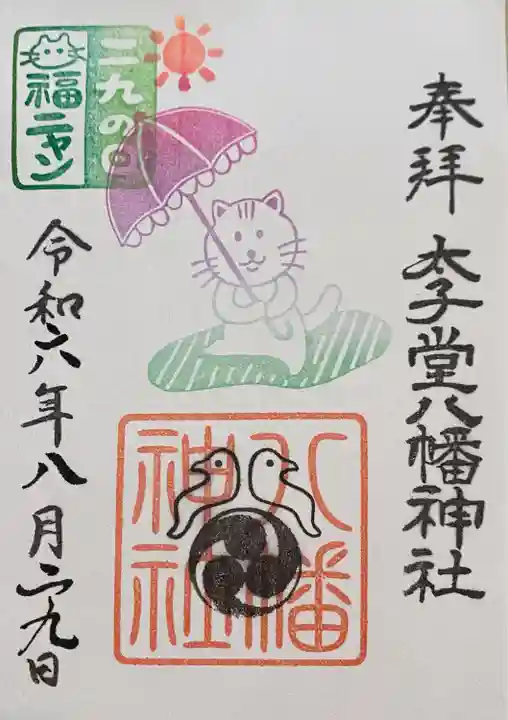 奉拝
太子堂八幡神社
二九の日
福ニャン
八幡
神社
令和六年八月二九日